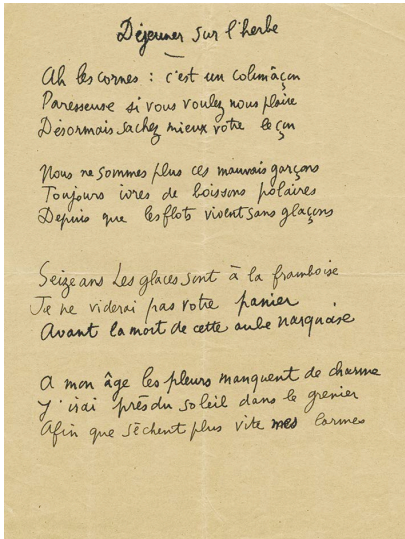 Déjeuner sur l'herbe
Ah les cornes : c'est un colimaçon
Paresseuse si vous voulez nous plaire
Désormais sachez mieux votre leçon
Nous ne sommes plus ces mauvais garçons
Toujours ivres de boissons polaires
Depuis que les flots vivent sans glaçons
Seize ans Les glaces sont à la framboise
Je ne viderai pas votre panier
Avant la mort de cette aube narquoise
A mon âge les pleurs manquent de charme
J'irai près du soleil dans le grenier
Afin que sèchent plus vite mes larmes